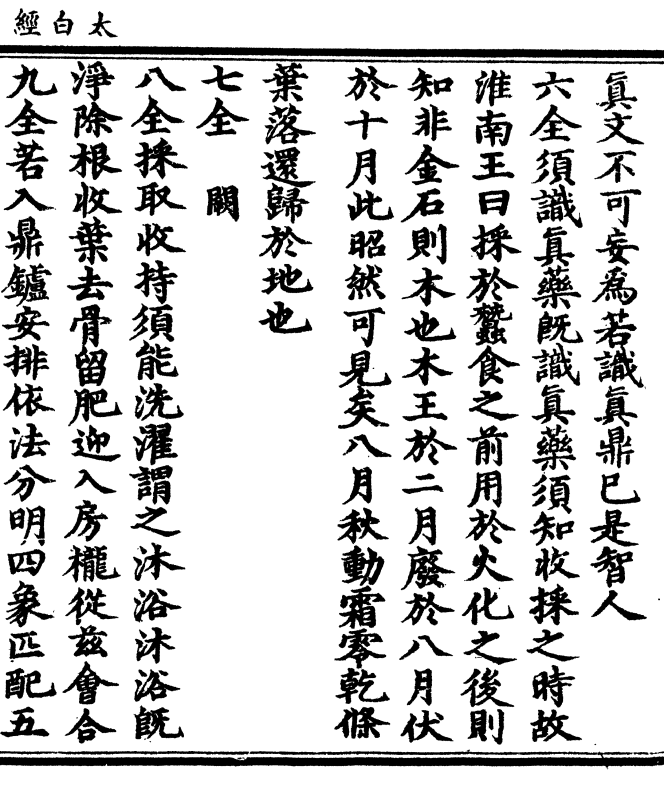 太白經
眞文不可妄爲若識眞鼎已是智人
六全須識眞藥旣識眞藥須知收採之時故
淮南王曰採於蠶食之前用於火化之後則
知非金石則木也木王於二月廢於八月伏
於十月此昭然可見矣八月秋動霜零乾條
葉落還歸於地也
七全　闕
八全採取收持須能洗濯謂之沐浴沐浴旣
淨除根收葉去骨留肥迎入房櫳從茲會合
九全若入鼎鑪安排依法分明四象匹配五